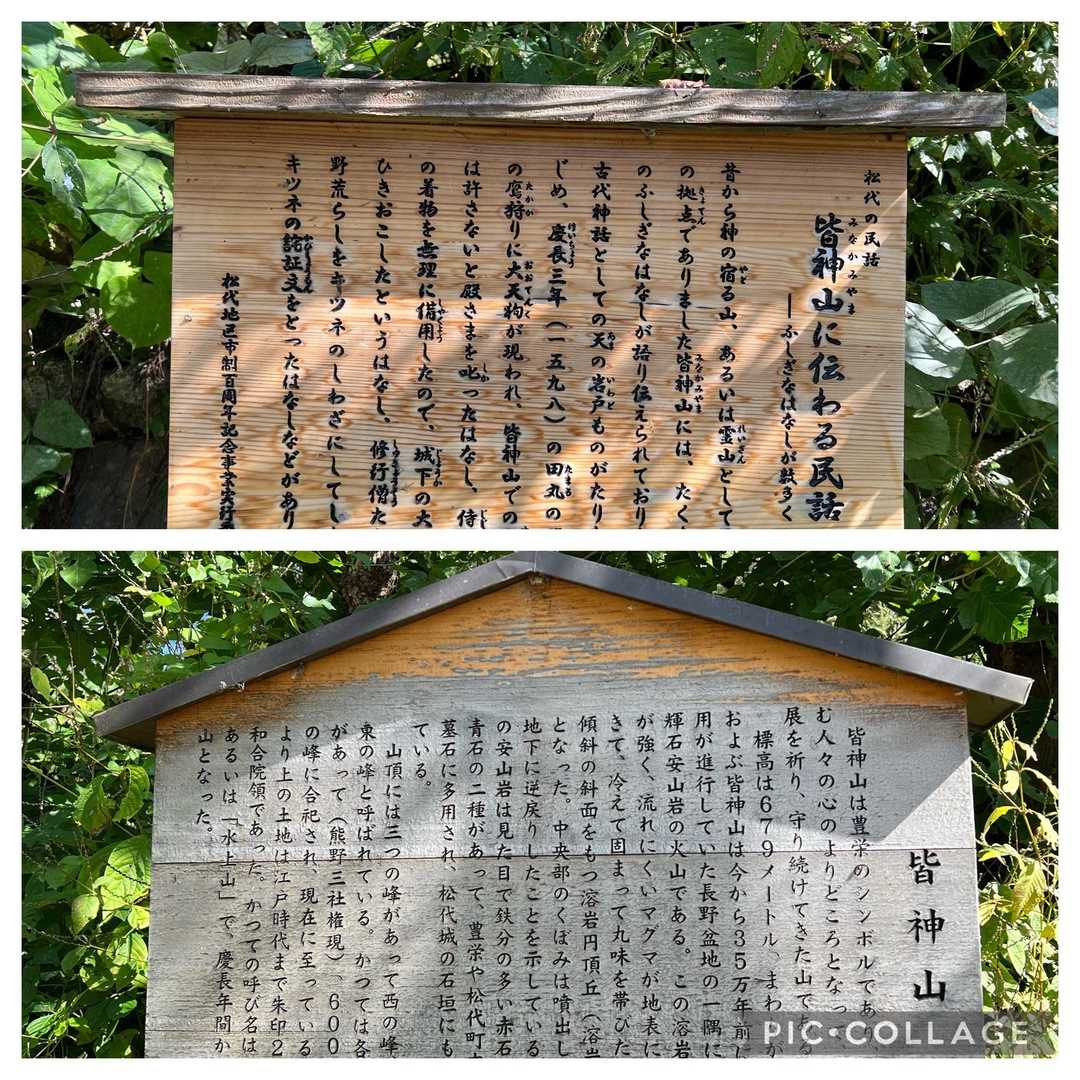 松代の民話
皆神山に伝わる民話
みなかみやま
―ふしぎなはなしが数多く
昔から神の宿る山、あるいは霊山として
の拠点でありました皆神山には、たく
のふしぎなはなしが語り伝えられており
古代神話としての天の岩戸ものがたり
じめ、慶長三年(一五九八)の田丸の
の鷹狩りに大天狗が現われ、皆神山での
は許さないと殿さまを叱ったはなし、侍
の着物を無理に借用したので、城下の大
ひきおこしたというはなし、修行僧た
野荒らしをキツネのしわざにしてし
キツネの詫証文をとったはなしなどがあり
松代地区市制百周年記念事業実行
皆神山
皆神山は豊栄のシンボルであ
む人々の心のよりどころとなっ
展を祈り、守り続けてきた山である
標高は679メートル、まわ
およぶ皆神山は今から35万年前に
用が進行していた長野盆地の一隅に
輝石安山岩の火山である。この溶岩
が強く、流れにくいマグマが地表に
きて、冷えて固まって丸味を帯びた
傾斜の斜面をもつ溶岩円頂丘(溶岩
となった。中央部のくぼみは噴出し
地下に逆戻りしたことを示している
の安山岩は見た目で鉄分の多い赤石
青石の二種があって、豊栄や松代町
墓石に多用され、松代城の石垣にも
ている。
山頂には三つの峰があって西の峰
東の峰と呼ばれている。かつては各
があって(熊野三社権現)、600
の峰に合祀され、現在に至っている
より上の土地は江戸時代まで朱印2
和合院領であった。かつての呼び名は
あるいは「水上山」で、慶長年間か
山となった。
PIC•COLLAGE